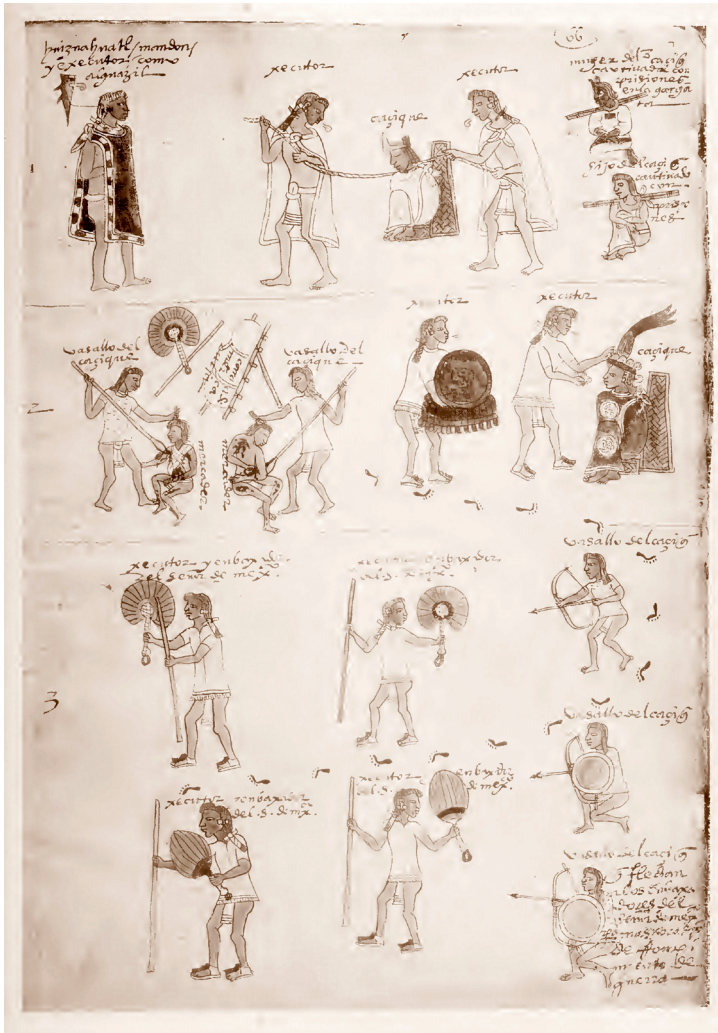 66
huiznahuatl mandon
y executor como
alguazil
xecutor
xecutor
caçique
muger del caciq
cautivada con
prisiones
en la gargā
ta
hijo del caciq
cautivado
con
prisio
nes
2
vasallo del
caçique
vasallo del
caçique
mercader
mercader
xecutor
xecutor
caçique
3
xecutor y enbaxador
del señor de mex.
xecutor enbaxador
vasallo del caciq
vasallo del caciq
xecutor y enbaxador
del .s. de mex.
xecutor enbaxador
del .s. de mex.
vasallo del caciq
q flechan
a los enbaxa
dores del
señor de mex
de ronpi
miento de
guerra